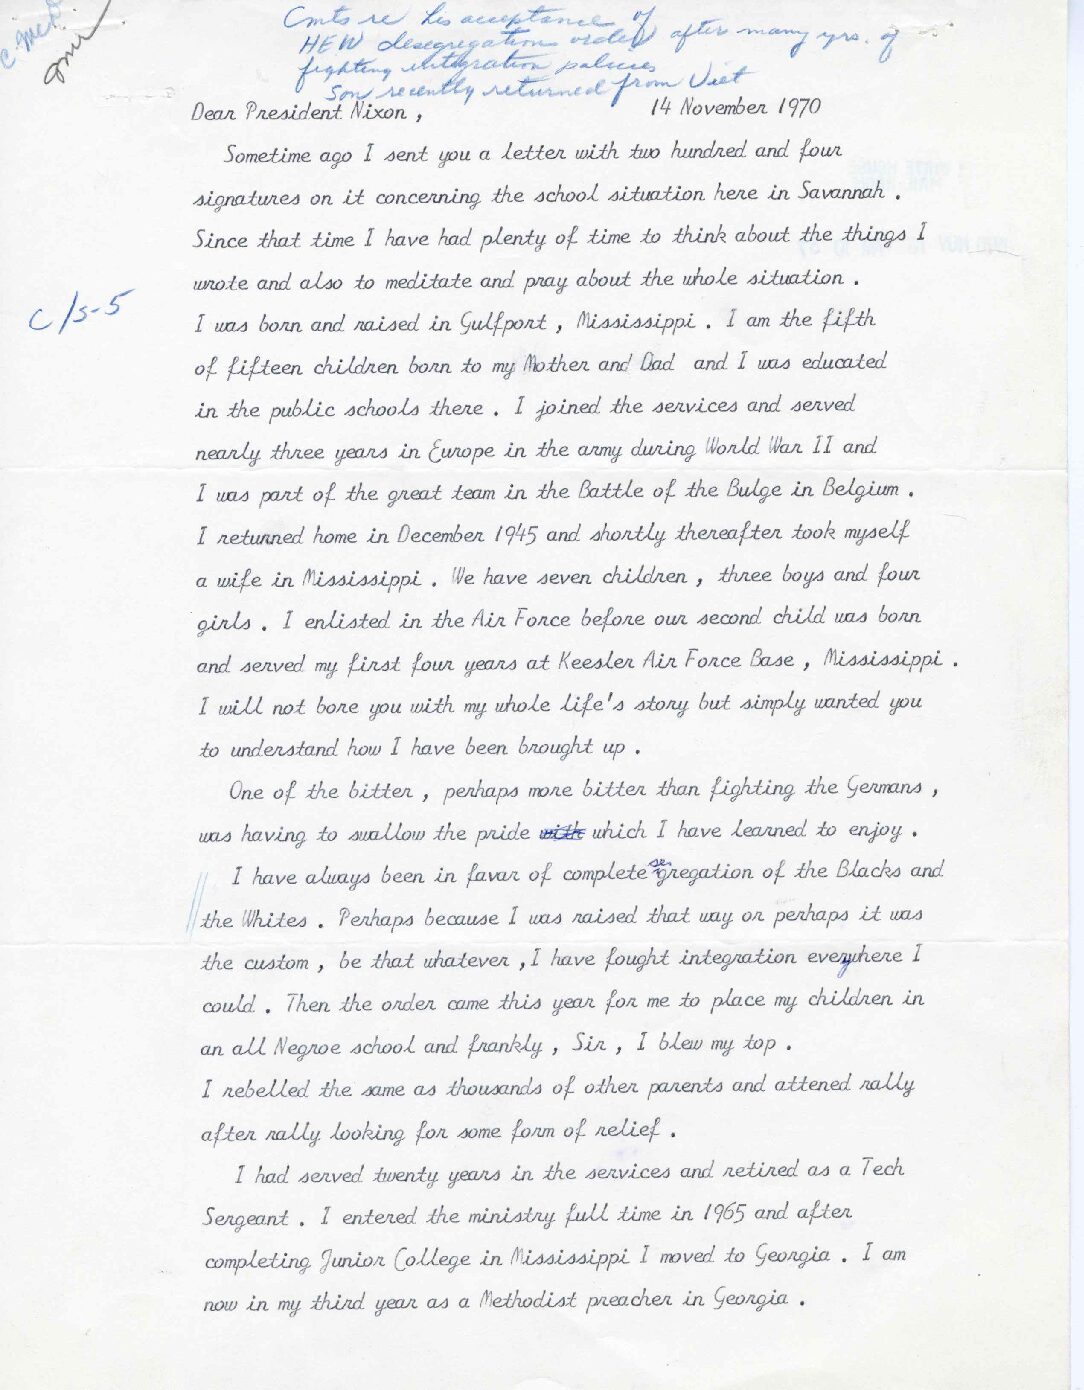 Cmts re his acceptance of
HEW desegregation order after many yrs. of
fighting integration policies
Son recently returned from Viet
Dear President Nixon , 14 November 1970
Sometime ago I sent you a letter with two hundred and four
signatures on it concerning the school situation here in Savannah .
Since that time I have had plenty of time to think about the things I
wrote and also to meditate and pray about the whole situation .
C/S-5
I was born and raised in Gulfport , Mississippi . I am the fifth
of fifteen children born to my Mother and Dad and I was educated
in the public schools there . I joined the services and served
nearly three years in Europe in the army during World War II and
I was part of the great team in the Battle of the Bulge in Belgium .
I returned home in December 1945 and shortly thereafter took myself
a wife in Mississippi . We have seven children , three boys and four
girls . I enlisted in the Air Force before our second child was born
and served my first four years at Keesler Air Force Base , Mississippi .
I will not bore you with my whole life's story but simply wanted you
to understand how I have been brought up .
One of the bitter , perhaps more bitter than fighting the Germans ,
was having to swallow the pride with which I have learned to enjoy .
I have always been in favar of complete segregation of the Blacks and
the Whites . Perhaps because I was raised that way or perhaps it was
the custom , be that whatever , I have fought integration everywhere I
could . Then the order came this year for me to place my children in
an all Negroe school and frankly , Sir , I blew my top .
I rebelled the same as thousands of other parents and attened rally
after rally looking for some form of relief .
I had served twenty years in the services and retired as a Tech
Sergeant . I entered the ministry full time in 1965 and after
completing Junior College in Mississippi I moved to Georgia . I am
now in my third year as a Methodist preacher in Georgia .